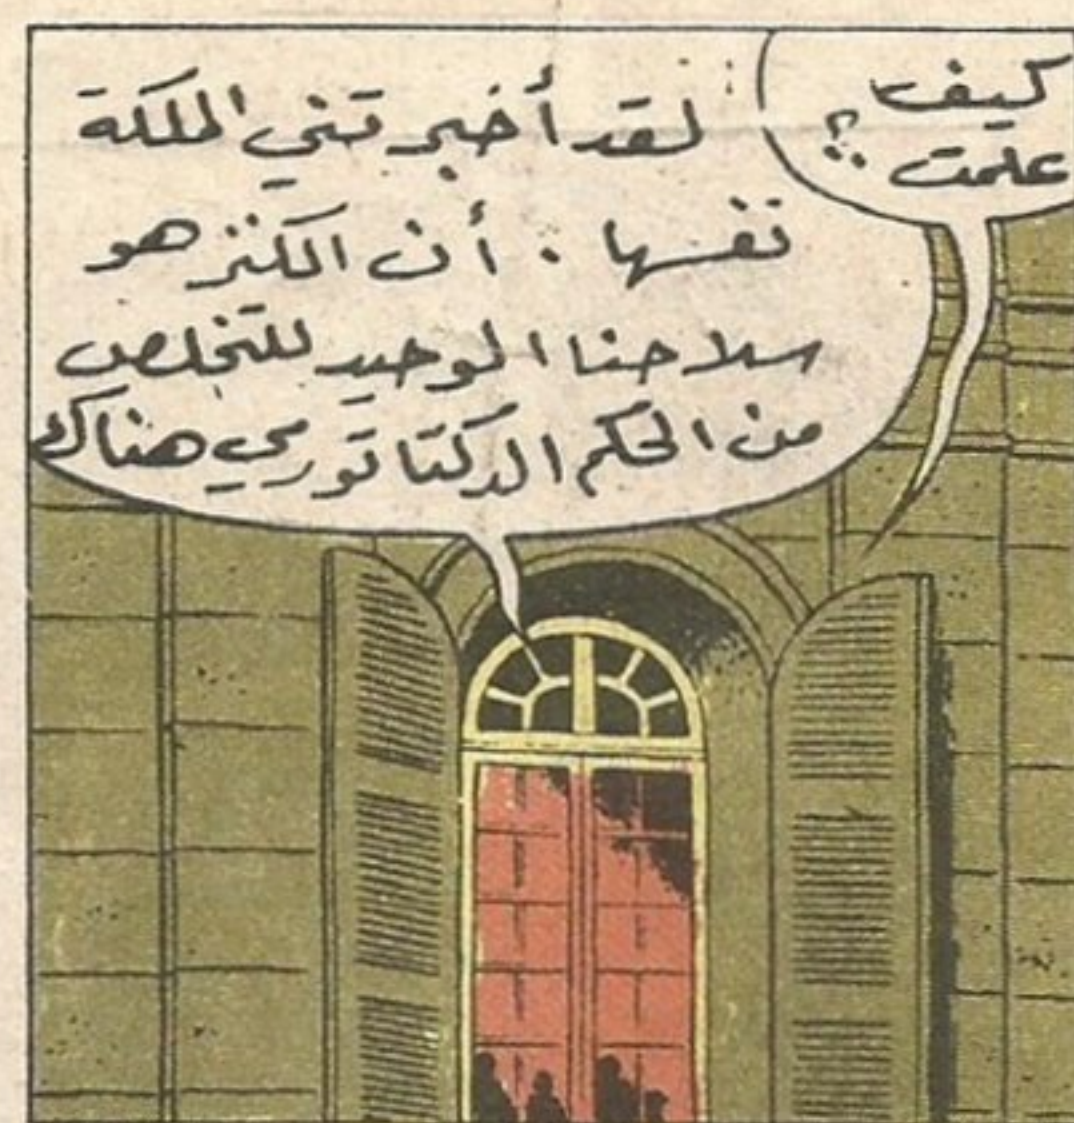 كيف
علمت ؟
لقد أخبرتني الملكة
نفسها . أن الكنز هو
سلاحنا الوحيد للتخلص
من الحكم الدكتاتوري هناك